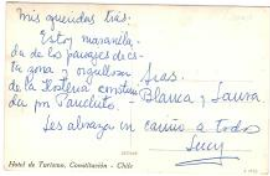 mis queridas tías:
Estoy maravilla-
da de los paisajes de es-
ta zona y orgullosa
de la Hostería construi-
da por Panchito.
Sras.
Blanca y Laura
Les abraza con cariño a todos
Lucy
Hotel de Turismo, Constitución - Chile